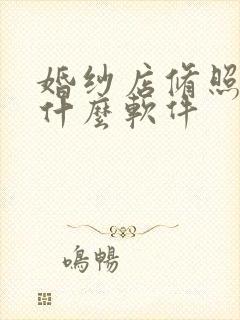 婚纱店修照
什麼軟件
鳴暢